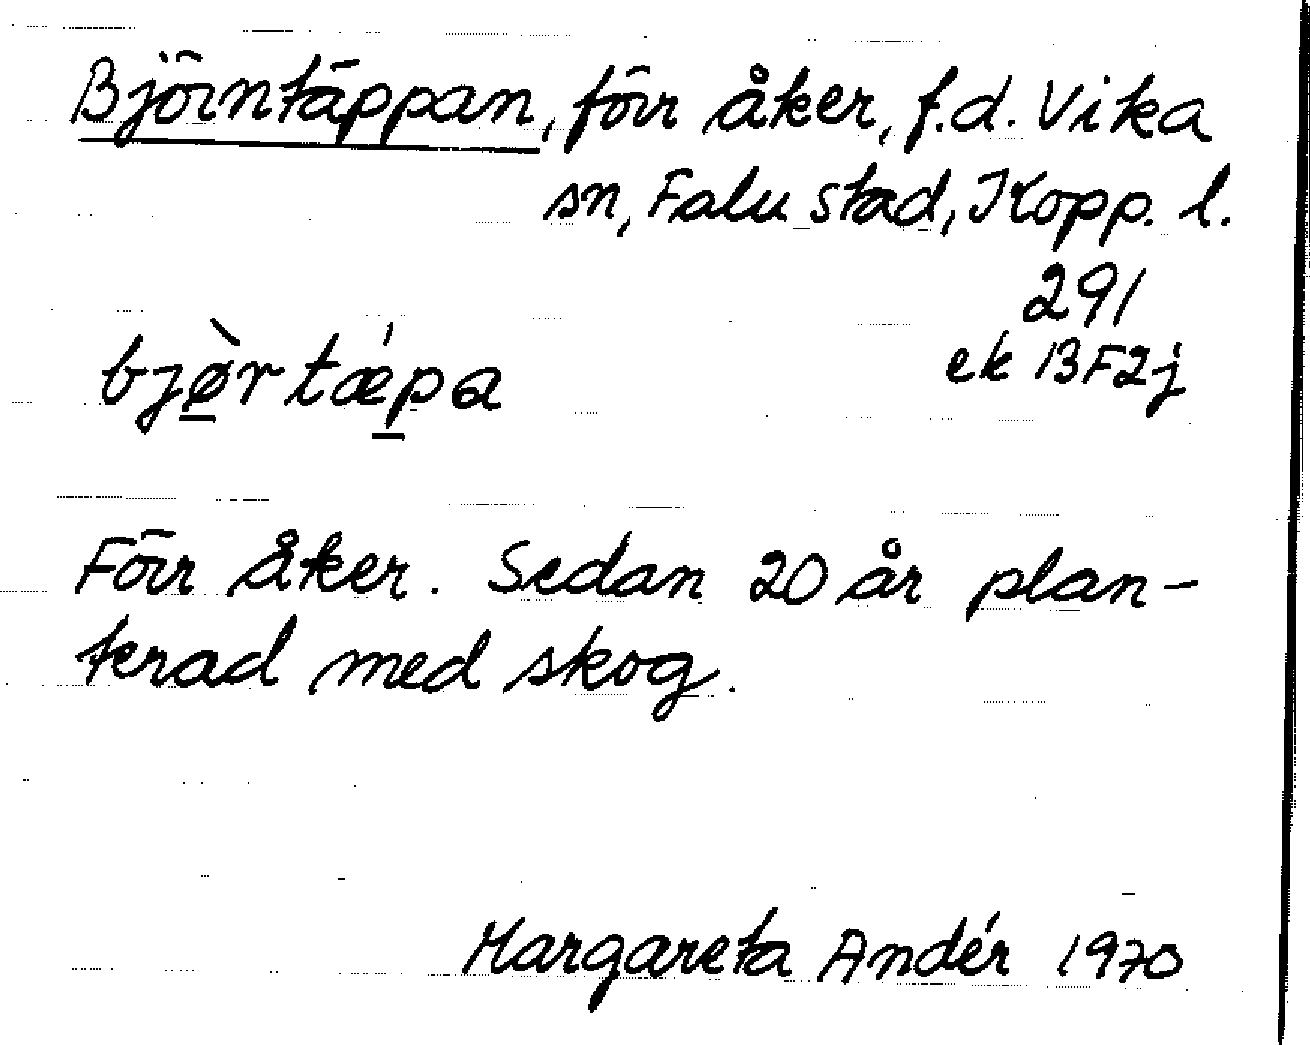 Björntäppan, förr åker, f.d. Vika
sn, Falu stad, Kopp. l.
291
ek 13F2j
bjø̀rtǽpa
Förr åker. Sedan 20 år plan-
terad med skog.
Margareta Andér 1970